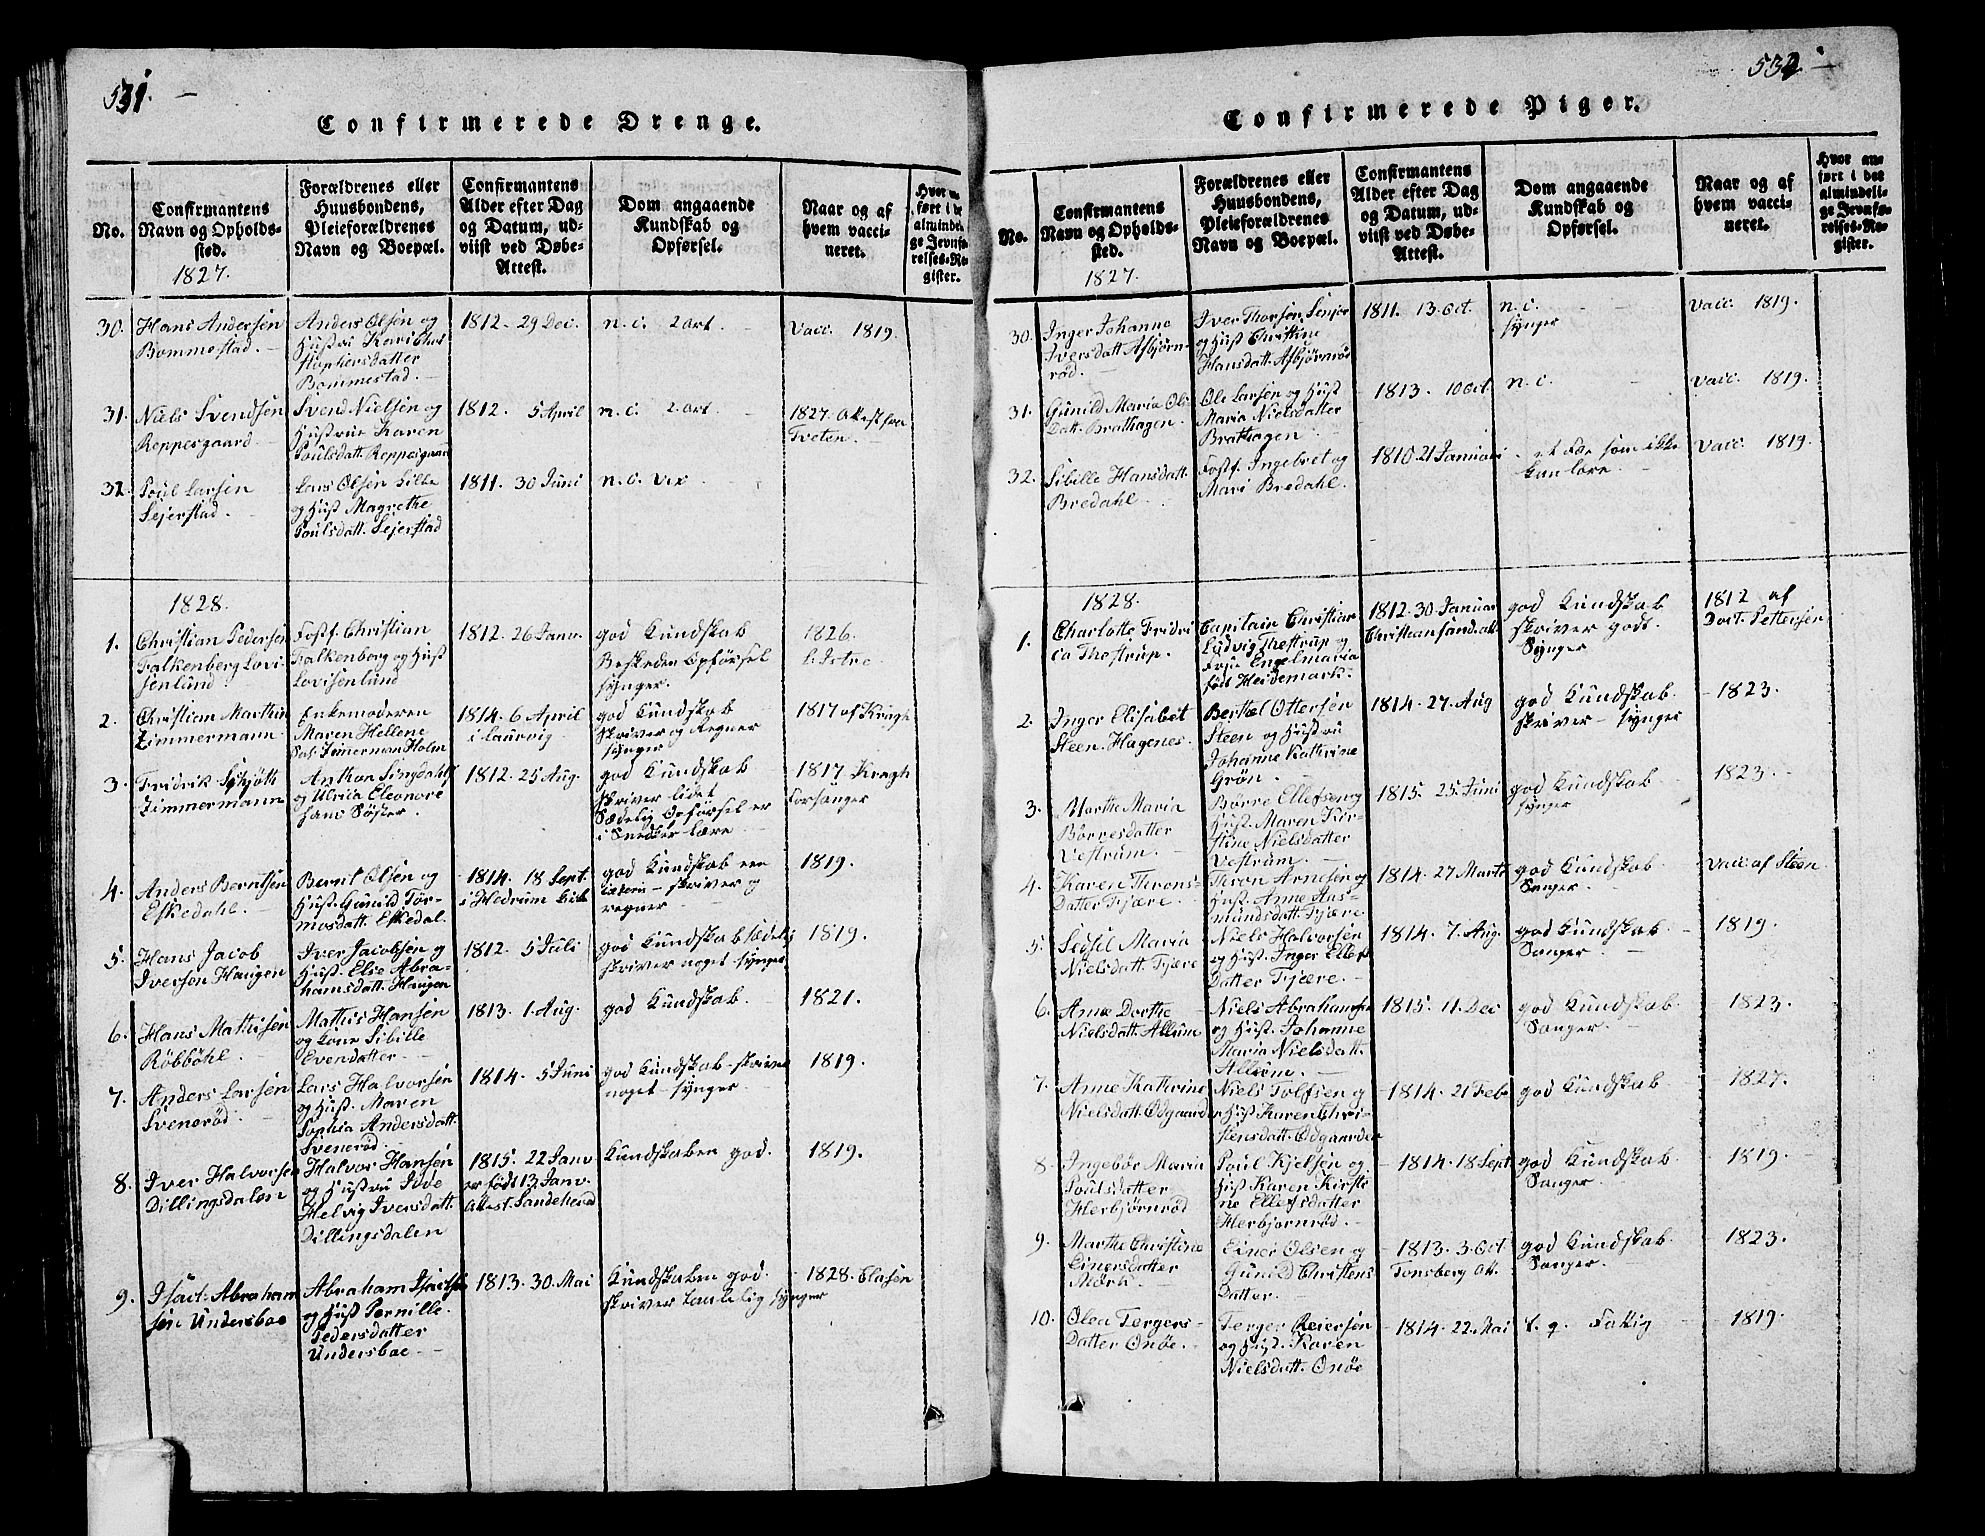 531.
Confirmerede Drenge.
No.
Confirmantens
Navn og Opholds-
sted.
1827.
Forældrenes eller
Huusbondens,
Pleieforældrenes
Navn og Boepæl.
Confirmantens
Alder efter Dag
og Datum, ud-
viist ved Døbe-
Attest.
Dom angaaende
Kundskab og
Opførsel.
Naar og af
hvem vacci-
neret.
Hvor an-
ført i de
almindel
ge Jevnfø
relses-Re
gister.
30.
Hans Andersen
Bommestad.
Anders Olsen og
Hustru Kari Chri
stophersdatter
Bommestad.
1812. 29 Dec.
n. c. 2 art
Vacc. 1819.
31.
Niels Svendsen
Reppesgaard
Svend Nielsen og
Hustrue Karen
Poulsdatt. Reppesgaar
1812. 5 April
n. c. 2 art
1827. Attest fra
Tveten.
32.
Poul Larsen
Sejerstad.
Lars Olsen Lille
og Hust Magrethe
Poulsdatt. Sejerstad
1811. 30 Juni
n. c. vix
1828.
1.
Christian Pedersen
Falkenberg Lovi
senlund
Fostf. Christian
Falkenborg og Hust
Lovisenlund
1812. 26 Janv.
god Kundskab
Beskeden Opførsel
synger.
1826.
2.
Christian Marthin
Zimmermann
Enkemoderen
Maren Hellene
Sal. Zimerman Holm
1814. 6 April
i Laurvig
god Kundskab
Skriver og Regner
synger
1817 af Kragh
3.
Fridrik Schjøth
Zimmermann
Anthon Singdahls
og Ulrica Eleonore
hans Søster.
1812. 25 Aug.
god Kundskab
skriver lidet
Sædelig Opførsel er
i Snedker lære
1817. Kragh
Forsanger
4.
Anders Berntsen
Eskedahl.
Bernt Olsen og
Hust. Gunild Tor-
mosdatt. Eskedal.
1814. 18 Sept.
i Hedrum Kirk
god Kundskab
skriver og
regner
1819.
5.
Hans Jacob
Iversen Haugen
Iver Jacobsen og
Hust. Else Abra-
hamsdatt. Haugen
1812. 5 Juli
god Kundskab sædelig
skriver noget synger
1819.
6.
Hans Mathisen
Røbbøhl.
Mathis Hansen
og Kone Sibille
Evendatter
1813. 1. Aug.
god Kundskab.
1821.
7.
Anders Larsen
Svenerød.
Lars Halvorsen
og Hust. Maren
Sophia Andersdatt.
Svenerød
1814. 5 Juni
god Kundskab skriver
noget synger.
1819.
8.
Iver Halvorsen
Dillingsdalen
Halvor Hansen
og Hustru Ivde
Helvig Iversdatt.
Dillingsdalen
1815. 22 Janv
er født 13 Janv.
Attest. Sandeherred
Kundskaben god.
1819.
9.
Isact. Abraham
sen Undersboe
Abraham Isactsen
og Hust Pernille
Pedersdatter
Undersboe
1813. 30 Mai
Kundskaben god.
skriver taalelig synger
1828. Clasen
532
Confirmerede Piger.
No.
Confirmantens
Navn og Opholds-
sted.
1827.
Forældrenes eller
Huusbondens,
Pleieforældrenes
Navn og Boepæl.
Confirmantens
Alder efter Dag
og Datum, ud-
viist ved Døbe-
Attest.
Dom angaaende
Kundskab og
Opførsel.
Naar og af
hvem vacci-
neret.
Hvor an-
ført i det
almindeli-
ge Jevnfø-
relses-Re-
gister.
30.
Inger Johanne
Iversdatt Asbjørn-
rød.
Iver Thorsen Senjor
og Hust Christine
Hansdatt. Asbjørnrød
1811. 13 Oct.
n. c.
synger
Vacc. 1819.
31.
Gunild Maria Ols
Datt. Brathagen.
Ole Larsen og Hust
Maria Nielsdatter
Brathagen
1813. 10 Oct.
n. c.
Vacc. 1819.
32.
Sibille Hansdatt.
Bredahl.
Fostf. Ingebret og
Mari Bredahl.
1810. 21 Januari
et Fæe som ikke
kan lære
Vacc. 1819.
1828.
1.
Charlotte Fridri
ca Thestrup.
Capitain Christian
Ludvig Thestrup og
Frue Engelmaria
født Heidemark.
1812. 30 Januar
Christiansand. att
god Kundskab
skriver godt.
Synger
1812 af
Doct. Pettersen
2.
Inger Elisabet
Steen. Hagenes.
Berthel Ottersen
Steen og Hustru
Johanne Kathrine
Grøn.
1814. 27. Aug
god Kundskab.
skriver synger
1823.
3.
Marthe Maria
Børresdatter
Vestrum.
Børre Ellefsen og
Hust. Maren Kir-
stine Nielsdatter
Vestrum.
1815. 25. Juni
god Kundskab
synger
1823.
4.
Karen Throns-
Datter Fjære.
Thron Arnesen og
Hust. Anne Aas-
mundsdatt. Fjære
1814. 27 Marts
god Kundskab.
Sanger.
Vacc. af Steen
5.
Sedsel Maria
Nielsdatt. Fjære
Niels Halvorsen
og Hust. Inger Ellefs
Datter Fjære.
1814. 7. Aug.
god Kundskab.
Sanger.
1819.
6.
Anne Dorthe
Nielsdatt. Allum
Niels Abrahamsen
og Hust. Johanne
Maria Nielsdatt.
Allum.
1815. 11. Dec
god Kundskab
Sanger.
1823.
7.
Anne Kathrine
Nielsdatt. Odgaarden
Niels Tolfsen og
Hust Karen Chri-
stensdatt. Odgaarden
1814. 21 Feb
god Kundskab
1827.
8.
Ingebor Maria
Poulsdatter
Herbjørnrød
Poul Kjelsen og
Hust Karen Kirsti
ne Ellefsdatter
Herbjornrød.
1814. 18 Sept.
god Kundskab.
Sanger.
1819.
9.
Marthe Christine
Einersdatter
Mørk.
Einer Olsen og
Gunild Christens
Datter.
1813. 3. Oct
Tonsberg att.
god Kundskab.
Sanger.
1823.
10.
Olea Tergers-
Datter Onøe.
Terger Reiersen
og Hust. Karen
Nielsdatt. Onøe
1814. 22. Mai
t. q. Fattig
1819.